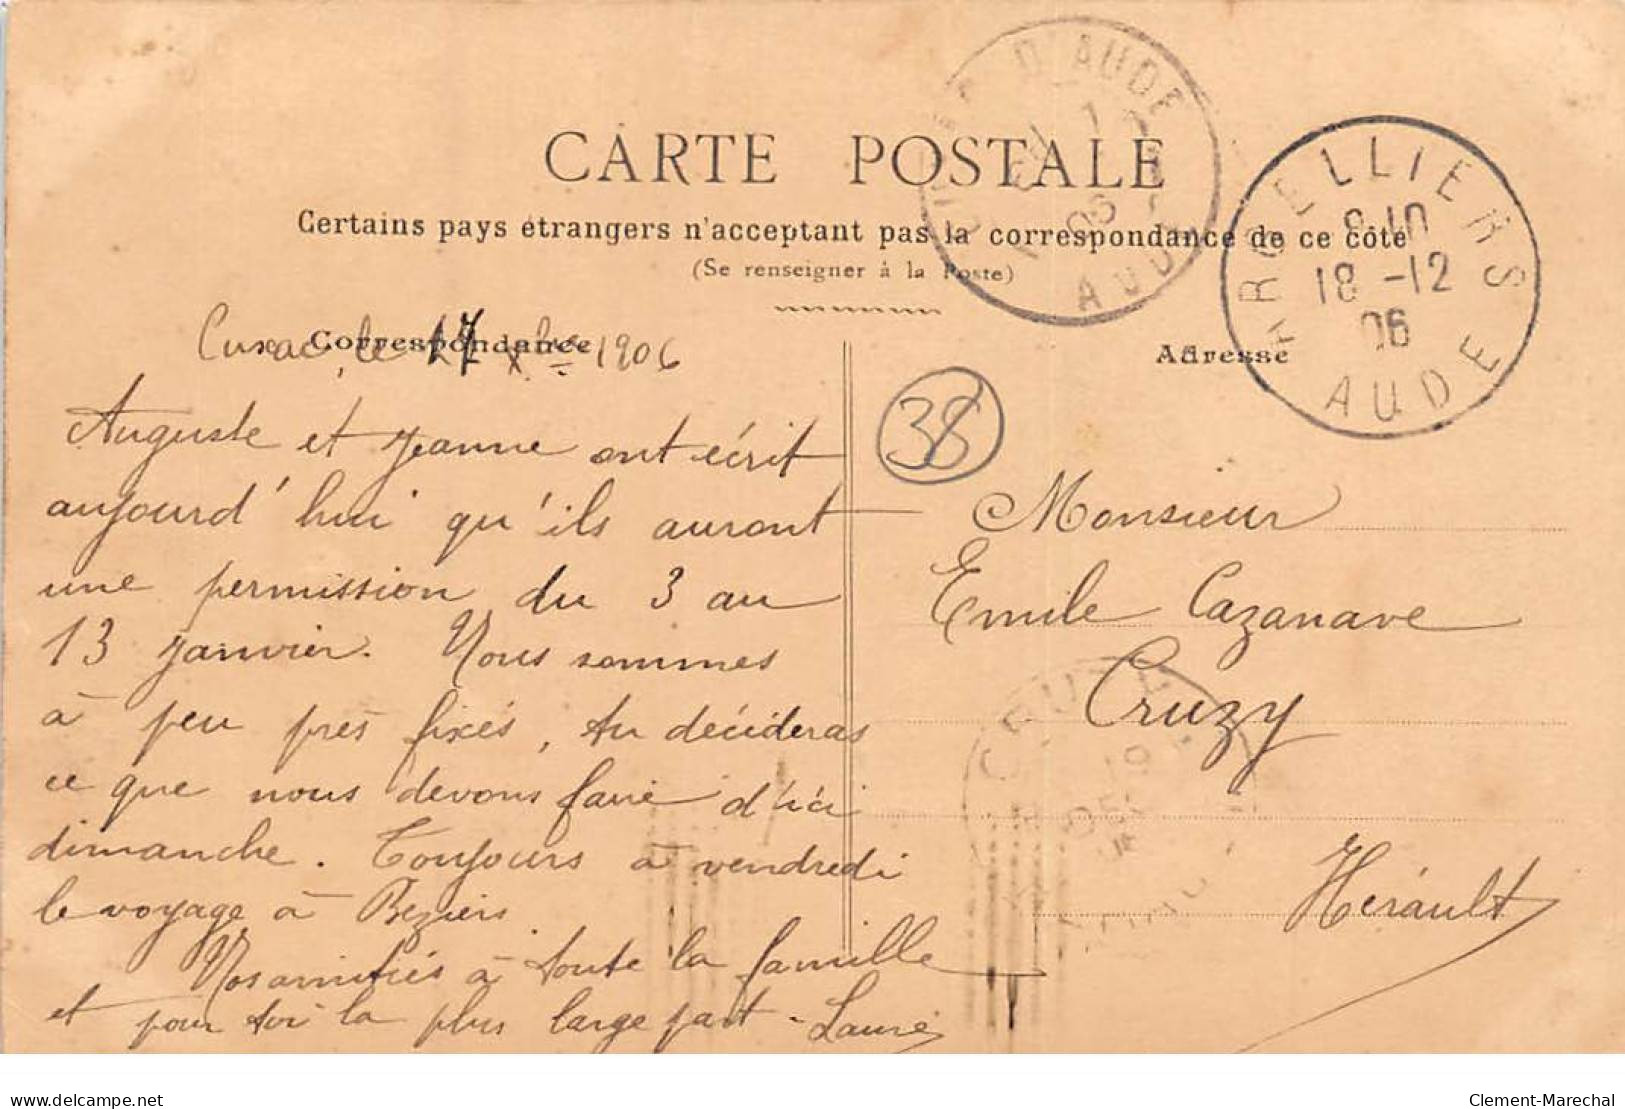 CARTE POSTALE
Certains pays étrangers n'acceptant pas la correspondance de ce côté
(Se renseigner à la Poste)
Correspondance
Cuxac, le 17 Xbre 1906
Auguste et Jeanne ont écrit
aujourd'hui qu'ils auront
une permission du 3 au
13 janvier. Nous sommes
à peu près fixés, tu décideras
ce que nous devons faire d'ici
dimanche. Toujours à vendredi
le voyage à Beziers.
Nos amitiés à toute la famille
et pour toi la plus large part. Laure
Adresse
38
Monsieur
Emile Cazanave
Cruzy
Hérault
D'AUDE
06
AUDE
ARGELLIERS
8-10
18 -12
06
AUDE
CRUZY
19
DEC
delcampe.net
Clement-Marechal